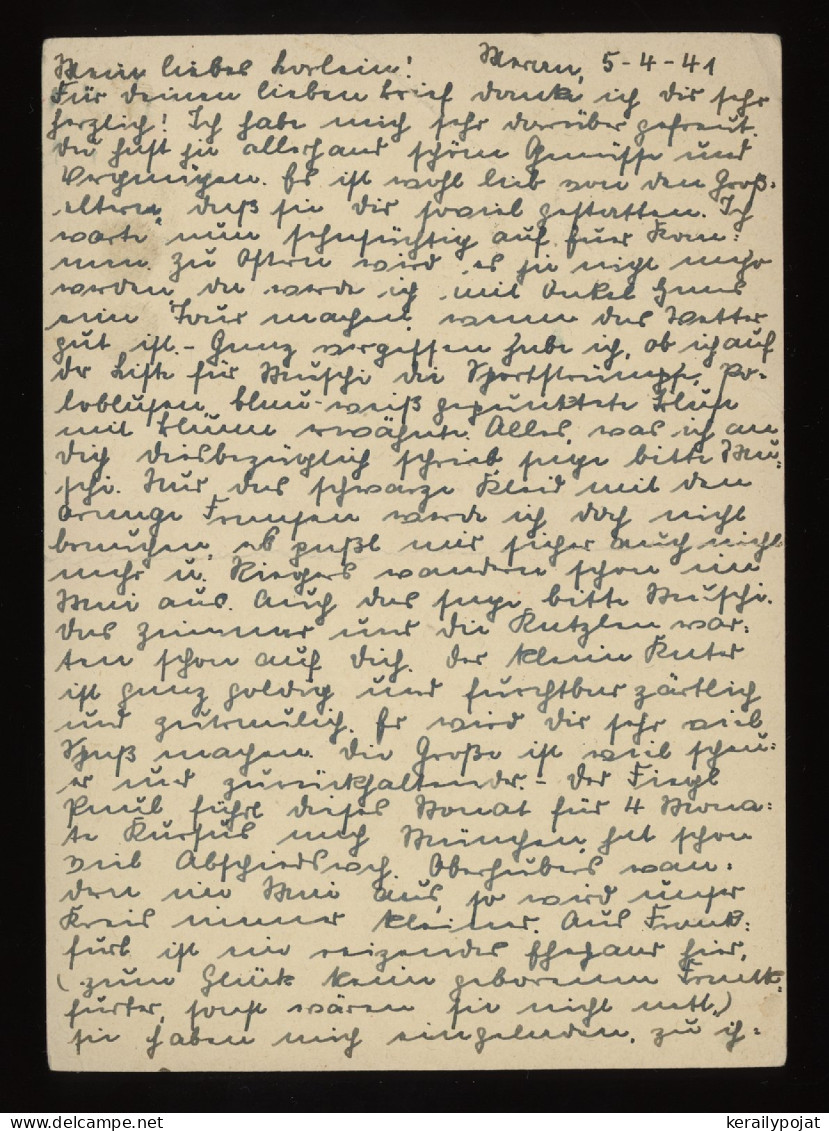 Meran, 5-4-41
Mein liebes Lorlein!
Für deinen lieben Brief danke ich dir sehr
herzlich! Ich habe mich sehr darüber gefreut.
Du hast ja allerhand schöne Genüsse und
Vergnügen. Es ist wohl lieb von den Groß-
eltern, daß sie dir soviel gestatten. Ich
warte nun sehnsüchtig auf Euer Kom-
men. Zu Ostern wird es ja nicht mehr
werden, da werde ich mit Onkel Hans
eine Tour machen, wenn das Wetter
gut ist. - Ganz vergessen habe ich, ob ich auf
der Liste für Muschi die Sportstrümpfe, Po-
loblusen, blau-weiß gepunktete Bluse
mit Blume erwähnte. Alles, was ich an
dich diesbezüglich schrieb sage bitte Mu-
schi. Nur das schwarze Kleid mit den
orange Fransen werde ich doch nicht
brauchen, es paßt mir sicher auch nicht
mehr u. Riegers wandern schon im
Mai aus. Auch das sage bitte Muschi.
Das Zimmer und die Katzlen war-
ten schon auf dich. Der kleine Kater
ist ganz goldig und furchtbar zärtlich
und zutraulich. Er wird dir sehr viel
Spaß machen. Die Große ist viel scheu-
er und zurückhaltender. - Der Fiegl
Paul fährt dieses Monat für 4 Mona-
te Kursus nach München, hat schon
viel Abschiedswch. Oberhubers wan-
dern im Mai aus, so wird unser
Kreis immer kleiner. Aus Frank-
furt ist ein reizendes Ehepaar hier,
(zum Glück keine geborenen Frank-
furter, sonst wären sie nicht nett,)
sie haben mich eingeladen, zu ih-
kerailypojat